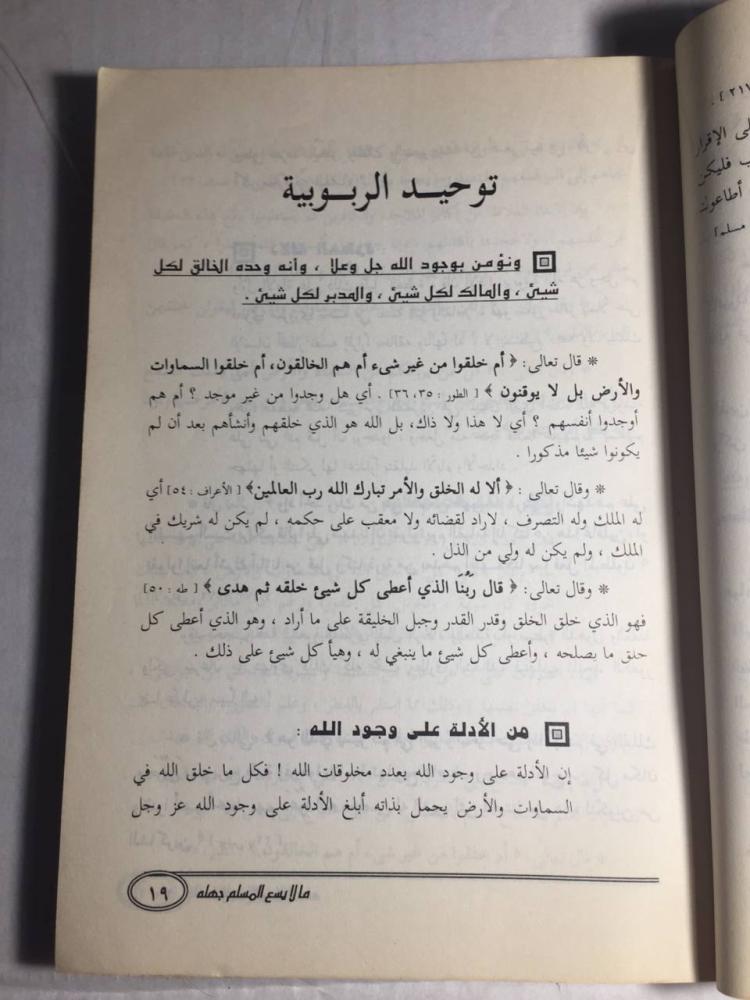 توحيد الربوبية
ونؤمن بوجود الله جل وعلا ، وأنه وحده الخالق لكل
شيئ ، والمالك لكل شيئ ، والمدبر لكل شيئ .
* قال تعالى : ﴿ أم خلقوا من غير شىء أم هم الخالقون، أم خلقوا السماوات
والأرض بل لا يوقنون ﴾ [ الطور : ٣٥، ٣٦ ] . أي هل وجدوا من غير موجد ؟ أم هم
أوجدوا أنفسهم ؟ أي لا هذا ولا ذاك، بل الله هو الذي خلقهم وأنشأهم بعد أن لم
يكونوا شيئا مذكورا .
* وقال تعالى : ﴿ ألا له الخلق والأمر تبارك الله رب العالمين﴾ [ الأعراف : ٥٤] أي
له الملك وله التصرف ، لاراد لقضائه ولا معقب على حكمه ، لم يكن له شريك في
الملك ، ولم يكن له ولي من الذل .
* وقال تعالى : ﴿ قال رَبُّنَا الذي أعطى كل شيئ خلقه ثم هدى ﴾ [ طه : ٥٠]
فهو الذي خلق الخلق وقدر القدر وجبل الخليقة على ما أراد ، وهو الذي أعطى كل
خلق ما يصلحه ، وأعطى كل شيئ ما ينبغي له ، وهيأ كل شيئ على ذلك .
من الأدلة على وجود الله :
إن الأدلة على وجود الله بعدد مخلوقات الله ! فكل ما خلق الله في
السماوات والأرض يحمل بذاته أبلغ الأدلة على وجود الله عز وجل
ما لا يسع المسلم جهله
١٩
٢١٧ ] .
الإقرار
فليكن
أطاعوك
مسلم]